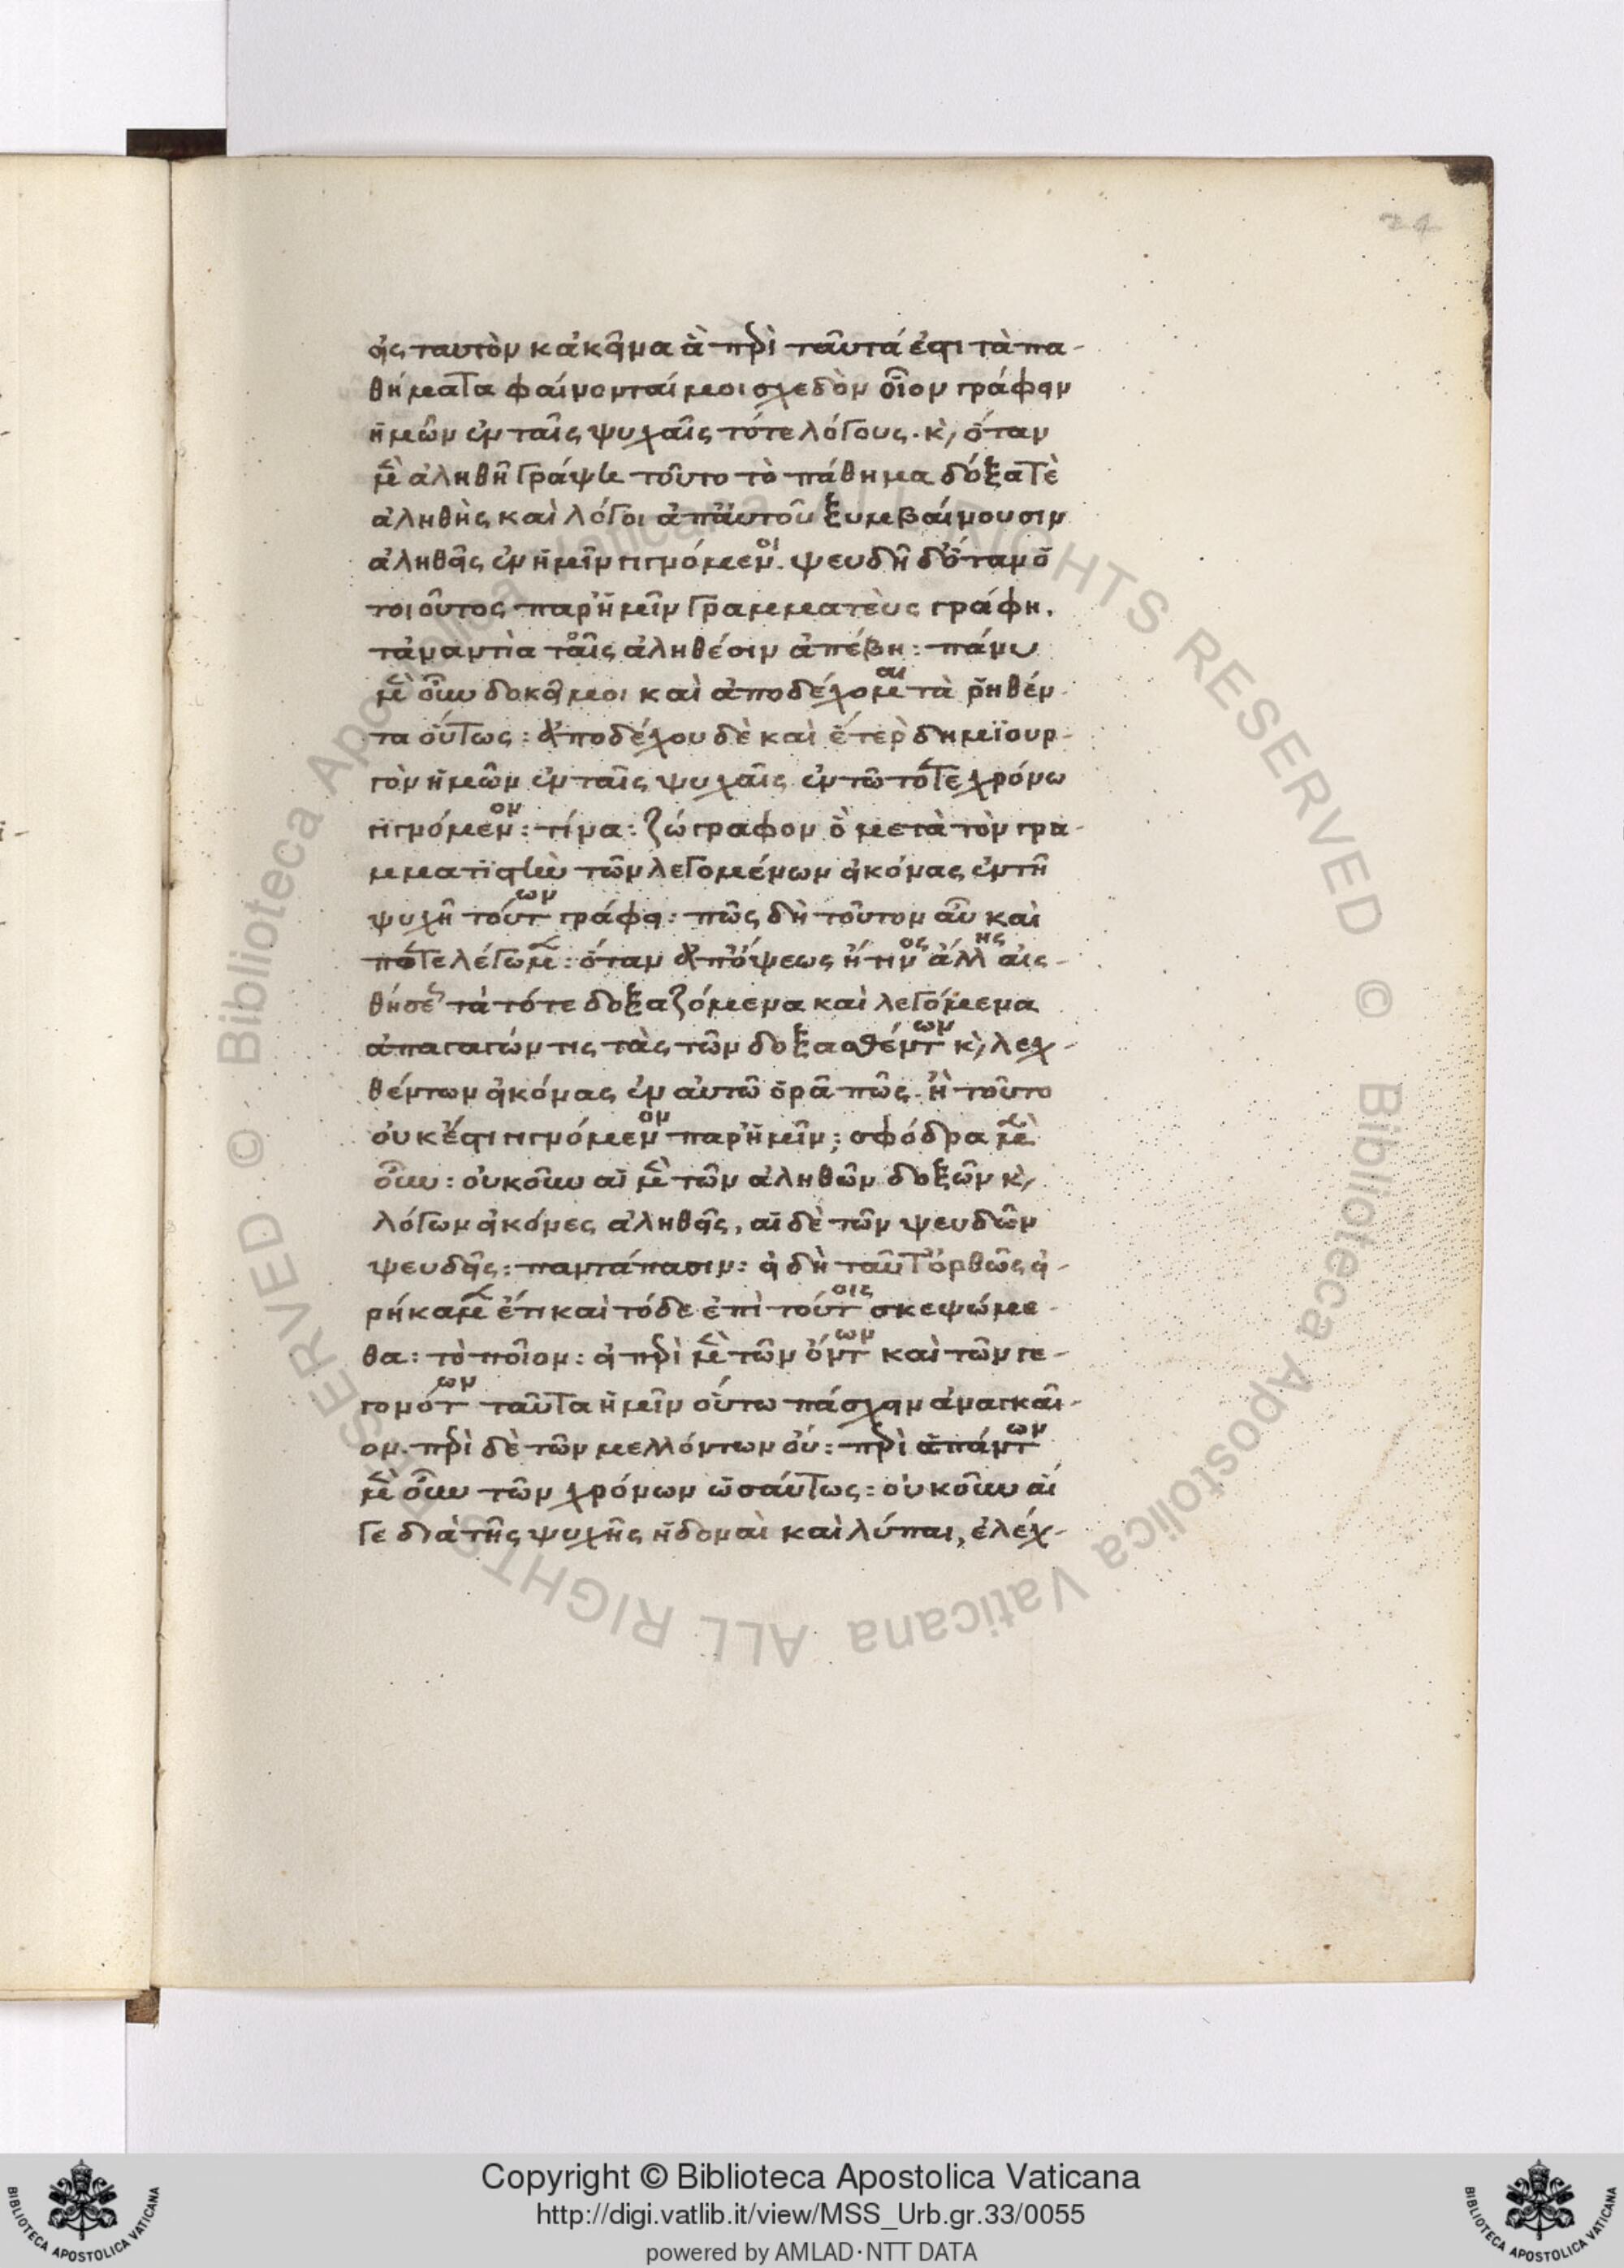 24
εἰς ταυτὸν κἀκεῖνα ἃ περὶ ταῦτά ἐστι τὰ πα-
θήματα φαίνονταί μοι σχεδὸν οἷον γράφειν
ἡμῶν ἐν ταῖς ψυχαῖς τότε λόγους. κ, ὅταν
μὲν ἀληθῆ γράψη τοῦτο τὸ πάθημα δόξα τὲ
ἀληθὴς καὶ λόγοι ἀπ' αὐτοῦ ξυμβαίνουσιν
ἀληθεῖς ἐν ἡμῖν γιγνόμενοι. ψευδῆ δ' ὅταν ὁ
τοιοῦτος παρ' ἡμῖν γραμματεὺς γράφη.
τἀναντία τοῖς ἀληθέσιν ἀπέβη: πάνυ
μὲν οὖν δοκεῖ μοι καὶ ἀποδέχομαι τὰ ῥηθέν
τα οὕτως: ἀποδέχου δὲ καὶ ἕτερον δημϊουρ-
γὸν ἡμῶν ἐν ταῖς ψυχαῖς ἐν τῶ τότε χρόνω
γιγνόμενον: τίνα: ζώγραφον ὃ μετὰ τὸν γρα-
μματϊστὴν τῶν λεγομένων εἰκόνας ἐν τῆ
ψυχῆ τούτων γράφει: πῶς δὴ τοῦτον αὖ καὶ
πότε λέγωμεν: ὅταν ἀπ' ὄψεως ἤ τινος ἄλλης αἰς-
θήσεως τὰ τότε δοξαζόμενα καὶ λεγόμενα
ἀπαγαγών τις τὰς τῶν δοξασθέντων κ, λεχ-
θέντων εἰκόνας ἐν αὑτῶ ὁρᾶ πῶς. ἢ τοῦτο
οὐκ ἔστι γιγνόμενον παρ' ἡμῖν; σφόδρα μὲν
οὖν: οὐκοῦν αἱ μὲν τῶν ἀληθῶν δοξῶν κ,
λόγων εἰκόνες ἀληθεῖς, αἱ δὲ τῶν ψευδῶν
ψευδεῖς: παντάπασιν: εἰ δὴ ταῦτ' ὀρθῶς εἰ-
ρήκαμεν ἔτι καὶ τόδε ἐπὶ τούτοις σκεψώμε-
θα: τὸ ποῖον: εἰ περὶ μὲν τῶν ὄντων καὶ τῶν γε-
γονότων ταῦτα ἡμῖν οὕτω πάσχειν ἀναγκαῖ-
ον. περὶ δὲ τῶν μελλόντων οὔ: περὶ ἁπάντων
μὲν οὖν τῶν χρόνων ὡσαύτως: οὐκοῦν αἵ
γε διὰ τῆς ψυχῆς ἡδοναὶ καὶ λύπαι, ἐλέχ-
Copyright © Biblioteca Apostolica Vaticana
http://digi.vatlib.it/view/MSS_Urb.gr.33/0055
powered by AMLAD·NTT DATA